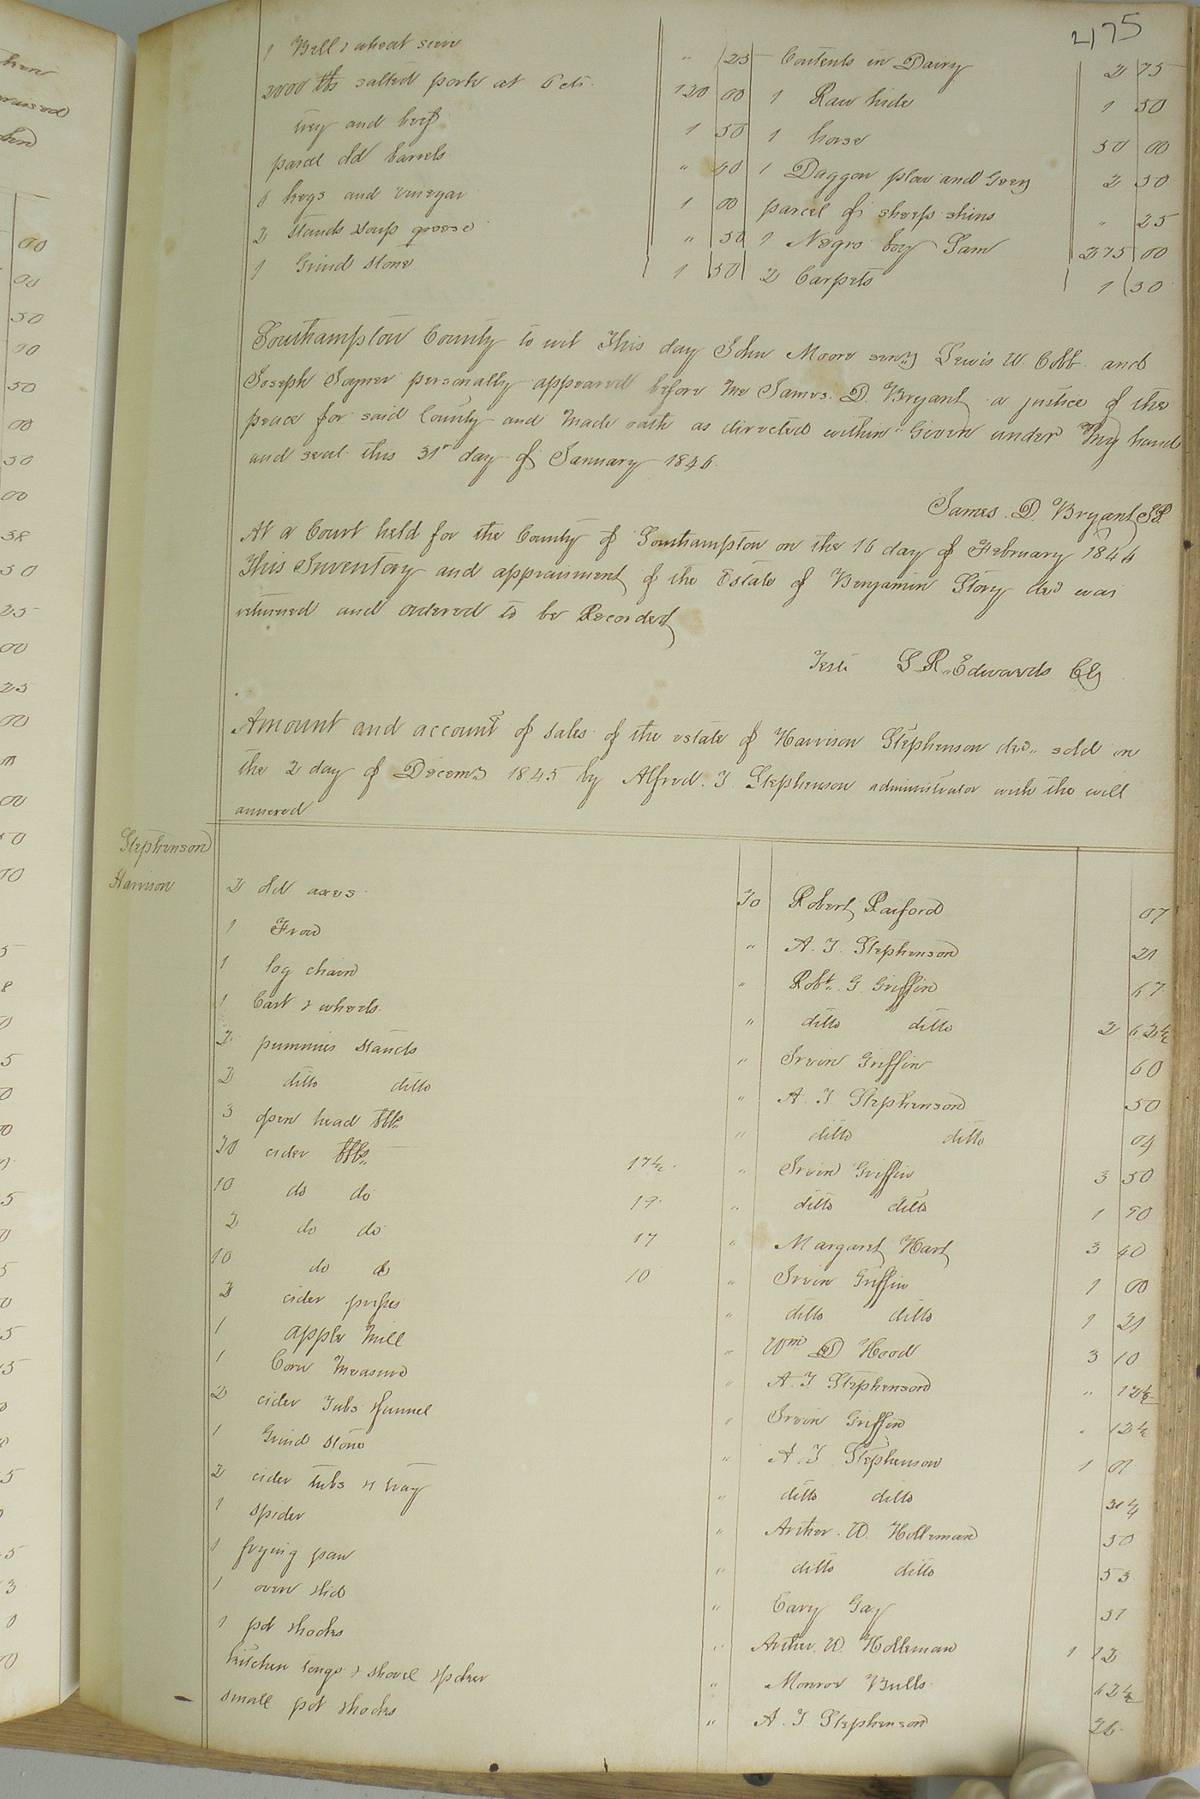 475
1 Bell & wheat seive " 25 Contents in Dairy 2 75
2000 lbs salted pork at 6 cts. 120 00 1 Raw hide 1 50
trey and beef 1 50 1 horse 50 00
parcel old barrels " 40 1 Daggon plow and Geerg 2 50
6 hegs and vinegar 1 00 parcel of sheep skins " 25
2 stands soap greese " 50 1 Negro boy Sam 275 00
1 Grind stone 1 50 2 Carpets 1 50
Southampton County to wit This day John Moore senr Lewis W. Cobb and
Joseph Joyner personally appeared before me James. D. Bryant a justice of the
peace for said County and made oath as directed within. Given under my hand
and seal this 31st day of January 1846.
James. D. Bryant JP
At a Court held for the County of Southampton on the 16 day of February 1846
This Inventory and appraisment of the Estate of Benjamin Story decd was
returned and ordered to be Recorded
Teste L R. Edwards Clk
Amount and account of sales of the estate of Harrison Stephenson decd. sold on
the 2 day of Decemb 1845 by Alfred. J Stephenson administrator with the will
annexed
Stephenson
Harrison
2 old axes To Robert Raiford 07
1 Frow " A. J. Stephenson 21
1 log chain " Robt. G. Griffin 67
1 Cart & wheels " ditto ditto 2 62½
2 pummies stands " Irvin Griffin 60
2 ditto ditto " A. J Stephenson 50
3 open head bbls " ditto ditto 04
20 cider bbls 17½ " Irvin Griffin 3 50
10 do do 19 " ditto ditto 1 90
2 do do 17 " Margaret Hart 3 40
10 do do 10 " Irvin Griffin 1 00
2 cider " ditto ditto 1 21
1 apple mill " Wm D Hood 3 10
1 Corn measure " A. J Stephenson " 12½
2 cider Tubs funnel " Irvin Griffin " 12½
1 Grind stone " A. J Stephenson 1 01
2 cider tubs & tray " ditto ditto 31¼
1 spider " Arther. W. Holleman 50
1 frying pan " ditto ditto 53
1 oven slid " Cary Gay 37
1 pot shocks " Arther. W. Holleman 1 12
kitchen tongs & shovel " Monroe Bulls 62½
small pot shocks " A. J Stephenson 26